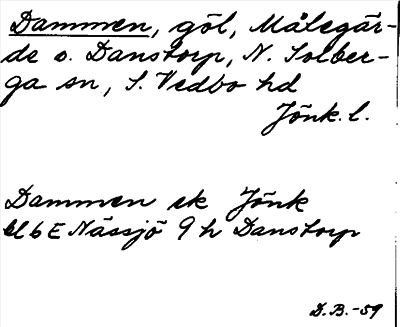 Dammen, göl, Målegår-
de o. Danstorp, N. Solber-
ga sn, S. Vedbo hd
Jönk. l.
Dammen ek Jönk
bl 6 E Nässjö 9 h Danstorp
D.B.-59